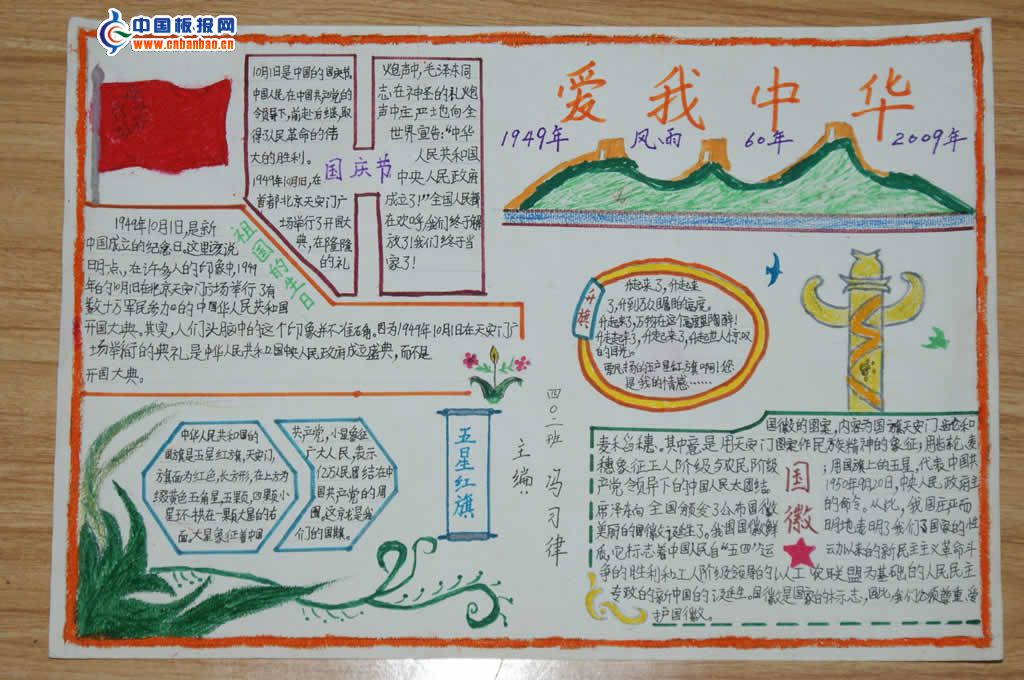 中国板报网
www.cnbanbao.cn
爱我中华
1949年 风雨 60年 2009年
国庆节
10月1日是中国的国庆节,
中国人民在中国共产党的
令领导下,前赴后继,取
得了人民革命的伟
大的胜利。
1949年10月1日,在
首都北京天安门广
场举行了开国大
典,在隆隆
的礼
炮声中,毛泽东同
志在神圣的礼炮
声中庄严士也向全
世界宣告:"中华
人民共和国
中央人民政府
成立了!"全国人民都
在欢呼,我们终于解
放了!我们终于当
家了!
祖国的生日
1949年10月1日,是新
中国成立的纪念日。这里该说
明一点,在许多人的印象中,1949
年的10月1日在北京天安门广场举行了有
数十万军民参加的中国华人民共和国
开国大典。其实,人们头脑中的这个印象并不准确。因为1949年10月1日在天安门广
场举行的典礼是中华人民共和国中央人民政府成立盛典,而不是
开国大典。
升旗
升起来了,升起来
了,升到万众瞩目的高度。
的目光。
是我的情感……
五星红旗
中华人民共和国的
国旗是五星红旗,天安门,
旗面为红色,长方形,在上方为
缀黄色五角星,五颗,四颗小
星环拱在一颗大星的右
面。大星象征着中国
共产党,小星象征
广大人民,表示
亿万人民团结在中
国共产党的周
围。这就是我
们的国旗。
四〇二班 冯习律
主编:
国徽
国徽的图案,内容为国旗天安门,齿轮和
麦禾舀穗。其中竟是用天安门图案作民族精神的象征;用齿轮,麦
穗象征工人阶级与农民阶级;用国旗上的五星,代表中国共
产党令领导下的中国人民大团结。1950年9月20日,中央人民政府主
席泽东向全国颁发了公布国徽的命令。从比,我国庄严而
美丽的国徽诞生了。我国国徽鲜明地表明了我们国家的性
质,它标志着中国人民自"五四"运动以来的新民主主义革命斗
争的胜利和工人阶级领导的以人工农联盟为基础的人民民主
专政的新中国的诞生。国徽是国家的标志,因此我们必须尊重,爱
护国徽。